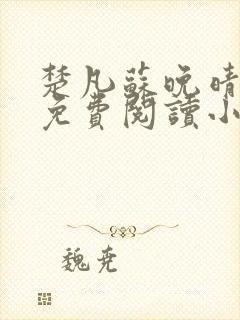 楚凡蘇晚晴
免費閱讀小
魏尭